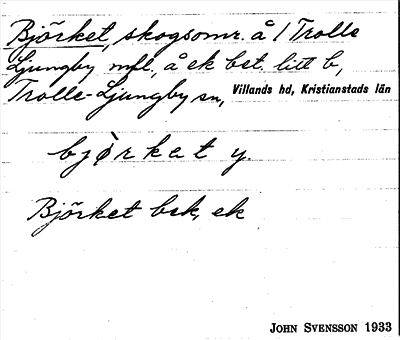 Björket, skogsomr. å 1 Trolle
Ljungby mfl., å ek bet. litt b,
Trolle-Ljungby sn, Villands hd, Kristianstads län
bjørkat y.
Björket bsk, ek
JOHN SVENSSON 1933